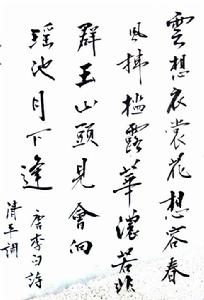 雲想衣裳花想容春
風拂檻露華濃若非
群玉山頭見會向
瑶池月下逢
唐李白詩
清平調